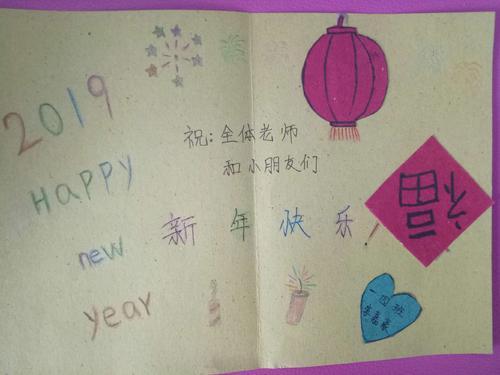 2019
HAPPY
new
year
祝:全体老师
和小朋友们
新年快乐!
福
一四班